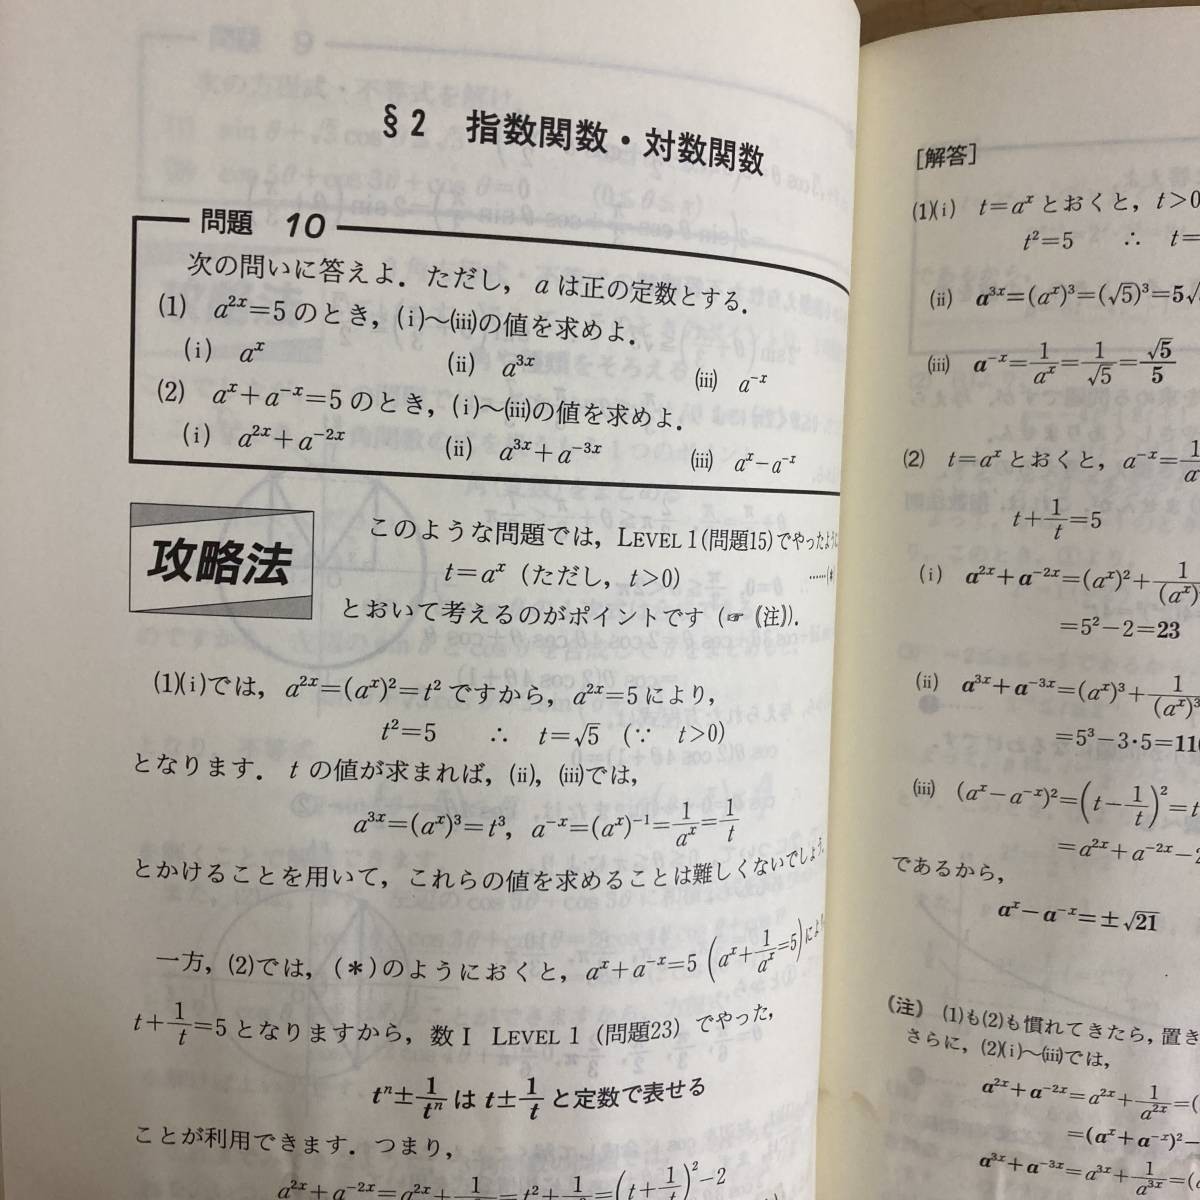 §2 指数関数・対数関数
問題 10
次の問いに答えよ．ただし，aは正の定数とする．
(1) a²ˣ=5のとき，(ⅰ)～(ⅲ)の値を求めよ．
(ⅰ) aˣ (ⅱ) a³ˣ (ⅲ) a⁻ˣ
(2) aˣ+a⁻ˣ=5のとき，(ⅰ)～(ⅲ)の値を求めよ．
(ⅰ) a²ˣ+a⁻²ˣ (ⅱ) a³ˣ+a⁻³ˣ (ⅲ) aˣ-a⁻ˣ
攻略法
このような問題では，LEVEL 1(問題15)でやったように
t=aˣ (ただし，t>0) ……(*
とおいて考えるのがポイントです (☞ (注))．
(1)(ⅰ)では，a²ˣ=(aˣ)²=t²ですから，a²ˣ=5により，
t²=5 ∴ t=√5 (∵ t>0)
となります．tの値が求まれば，(ⅱ)，(ⅲ)では，
a³ˣ=(aˣ)³=t³，a⁻ˣ=(aˣ)⁻¹=1/aˣ=1/t
とかけることを用いて，これらの値を求めることは難しくないでしょう．
一方，(2)では，(*)のようにおくと，aˣ+a⁻ˣ=5 (aˣ+1/aˣ=5)により
t+1/t=5となりますから，数Ⅰ LEVEL 1 (問題23) でやった，
tⁿ±1/tⁿ は t±1/t と定数で表せる
ことが利用できます．つまり，
a²ˣ+a⁻²ˣ=a²ˣ+1/a²ˣ=t²+1/t²=(t+1/t)²-2
[解答]
(1)(ⅰ) t=aˣとおくと，t>0
t²=5 ∴ t=
(ⅱ) a³ˣ=(aˣ)³=(√5)³=5√
(ⅲ) a⁻ˣ=1/aˣ=1/√5=√5/5
(2) t=aˣとおくと，a⁻ˣ=1/a
t+1/t=5
(ⅰ) a²ˣ+a⁻²ˣ=(aˣ)²+1/(aˣ)²
=5²-2=23
(ⅱ) a³ˣ+a⁻³ˣ=(aˣ)³+1/(aˣ)³
=5³-3・5=110
(ⅲ) (aˣ-a⁻ˣ)²=(t-1/t)²=t
=a²ˣ+a⁻²ˣ-2
であるから，
aˣ-a⁻ˣ=±√21
(注) (1)も(2)も慣れてきたら，置き
さらに，(2)(ⅰ)～(ⅲ)では，
a²ˣ+a⁻²ˣ=a²ˣ+1/a²ˣ=(
=(aˣ+a⁻ˣ)²-
a³ˣ+a⁻³ˣ=a³ˣ+1/a³ˣ=(